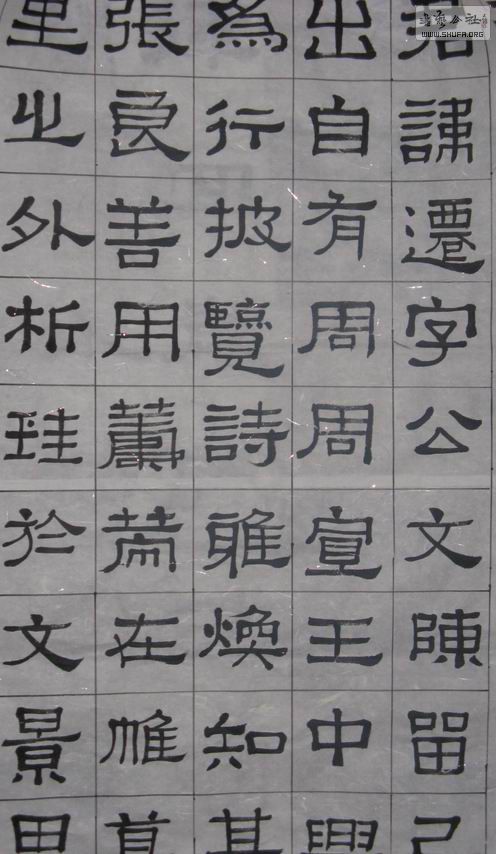 君諱遷字公文陳留己
出自有周周宣王中興
爲行披覽詩雅煥知其
張良善用籌策在帷幕
里之外析珪於文景
書藝公社
WWW.SHUFA.ORG